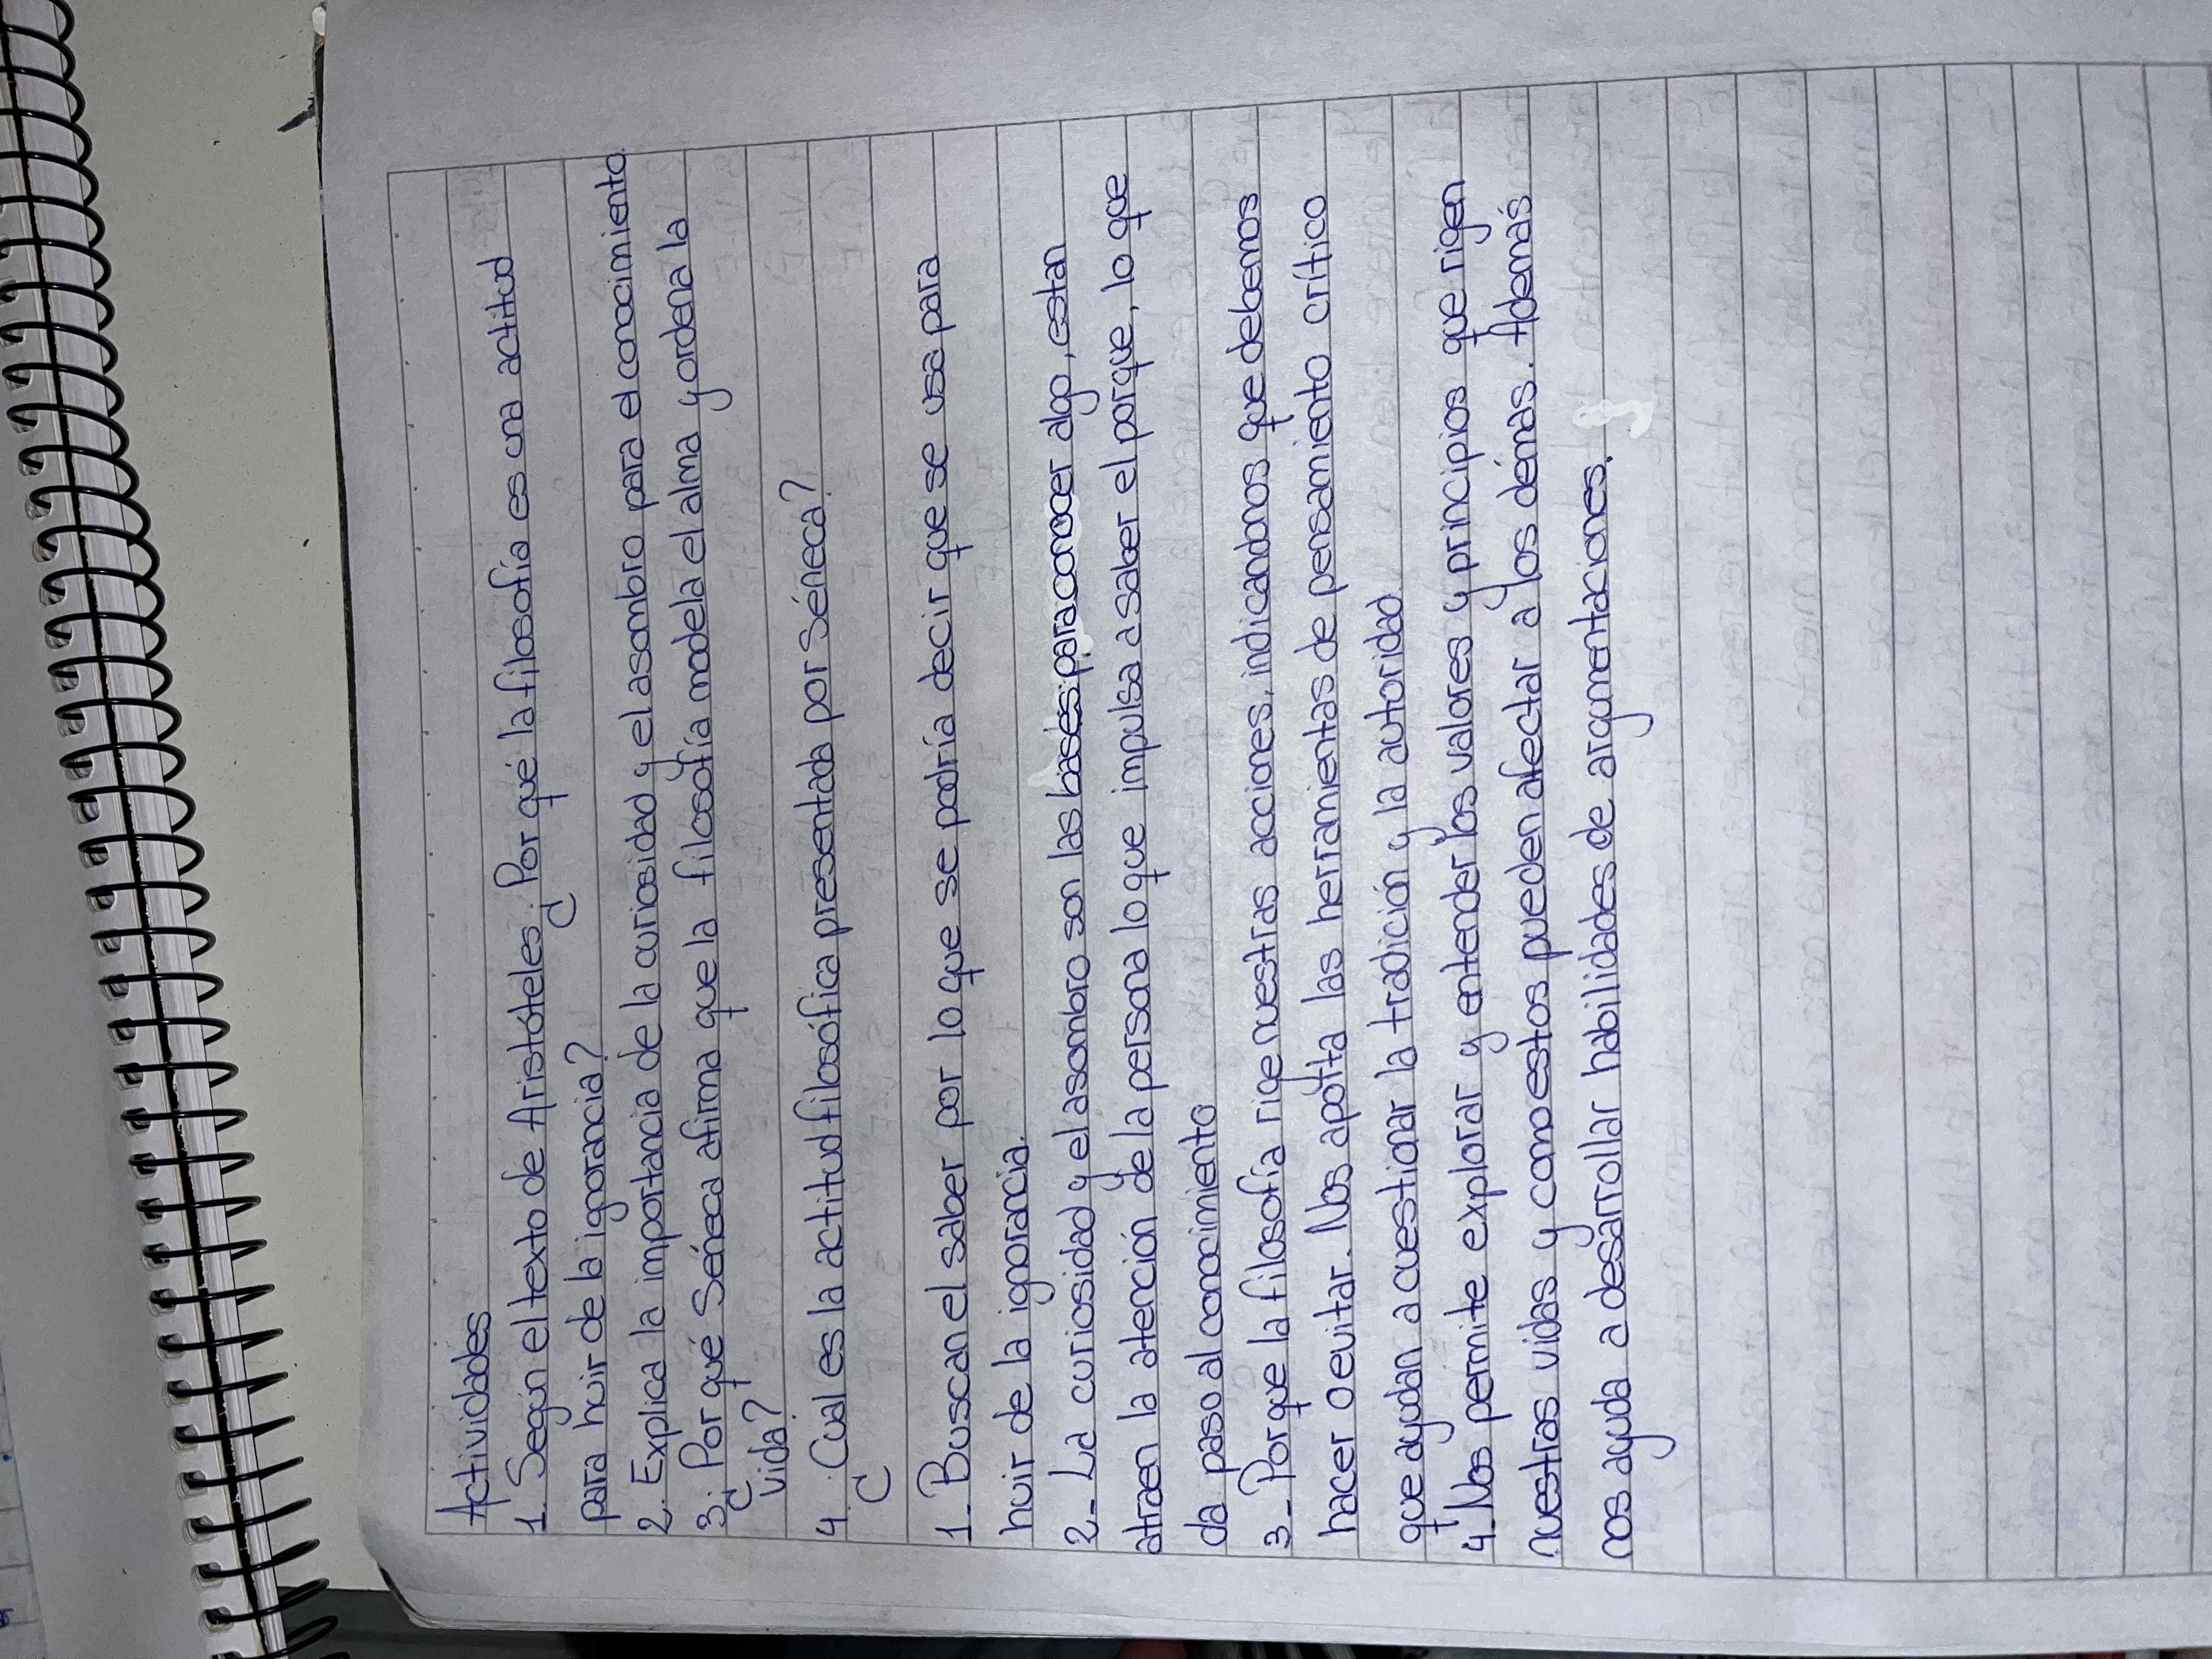 Actividades
1. Según el texto de Aristóteles ¿Por qué la filosofía es una actitud
para huir de la ignorancia?
2. Explica la importancia de la curiosidad y el asombro para el conocimiento.
3. ¿Por qué Séneca afirma que la filosofía modela el alma y ordena la
vida?
4. ¿Cual es la actitud filosófica presentada por Séneca?
1_ Buscan el saber por lo que se podría decir que se usa para
huir de la ignorancia.
2_ La curiosidad y el asombro son las bases para conocer algo, estan
atraen la atención de la persona lo que impulsa a saber el porque, lo que
da paso al conocimiento
3_ Porque la filosofía rige nuestras acciones, indicandonos que debemos
hacer o evitar. Nos aporta las herramientas de pensamiento crítico
que ayudan a cuestionar la tradición y la autoridad.
4_ Nos permite explorar y entender los valores y principios que rigen
nuestras vidas y como estos pueden afectar a los démas. Además
nos ayuda a desarrollar habilidades de argumentaciones.